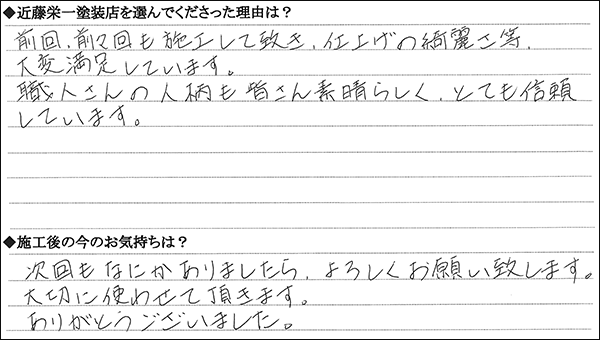 ◆近藤栄一塗装店を選んでくださった理由は？
前回、前々回も施工して致き、仕上げの綺麗さ等、
大変満足しています。
職人さんの人柄も皆さん素晴らしく、とても信頼
しています。
◆施工後の今のお気持ちは？
次回もなにかありましたら、よろしくお願い致します。
大切に使わせて頂きます。
ありがとうございました。